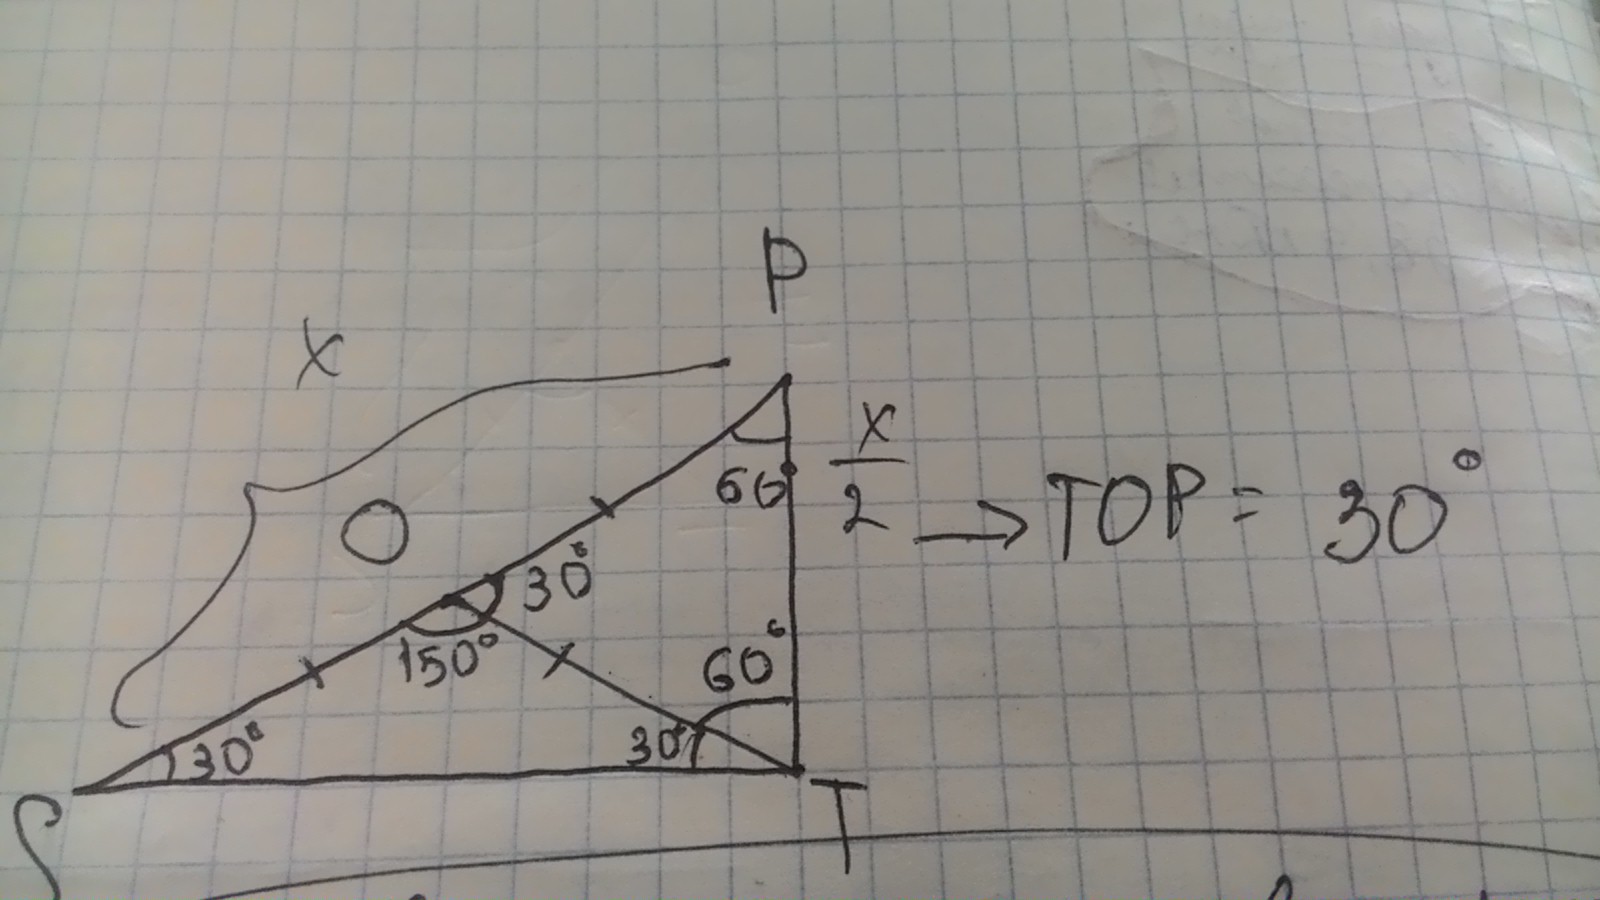 P
X
X
2
60
→ TOP = 30°
O
30°
150°
60°
30°
30°
S
T